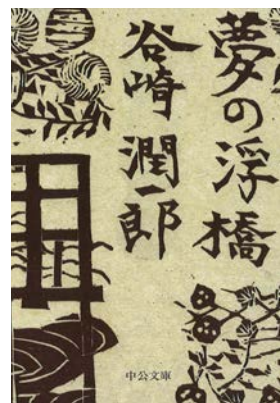 夢の浮橋
谷崎潤一郎
中公文庫